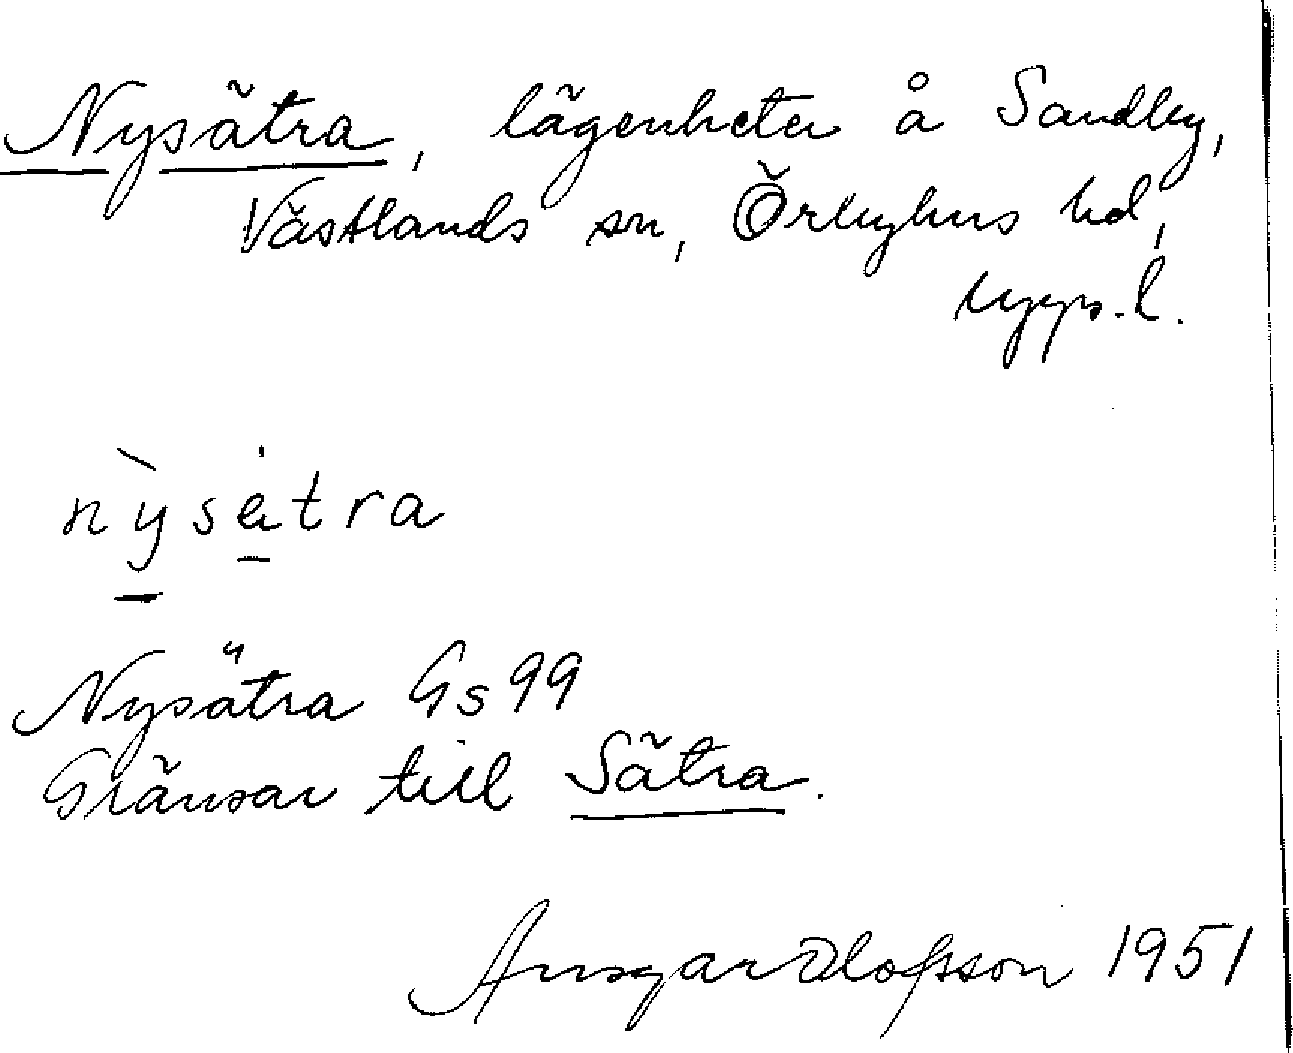 Nysätra, lägenheter å Sandby,
Västlands sn, Örbyhus hd,
Upps. l.
nysätra
Nysätra Gs 99
Gränsar till Sätra.
Ansgar Olofsson 1951